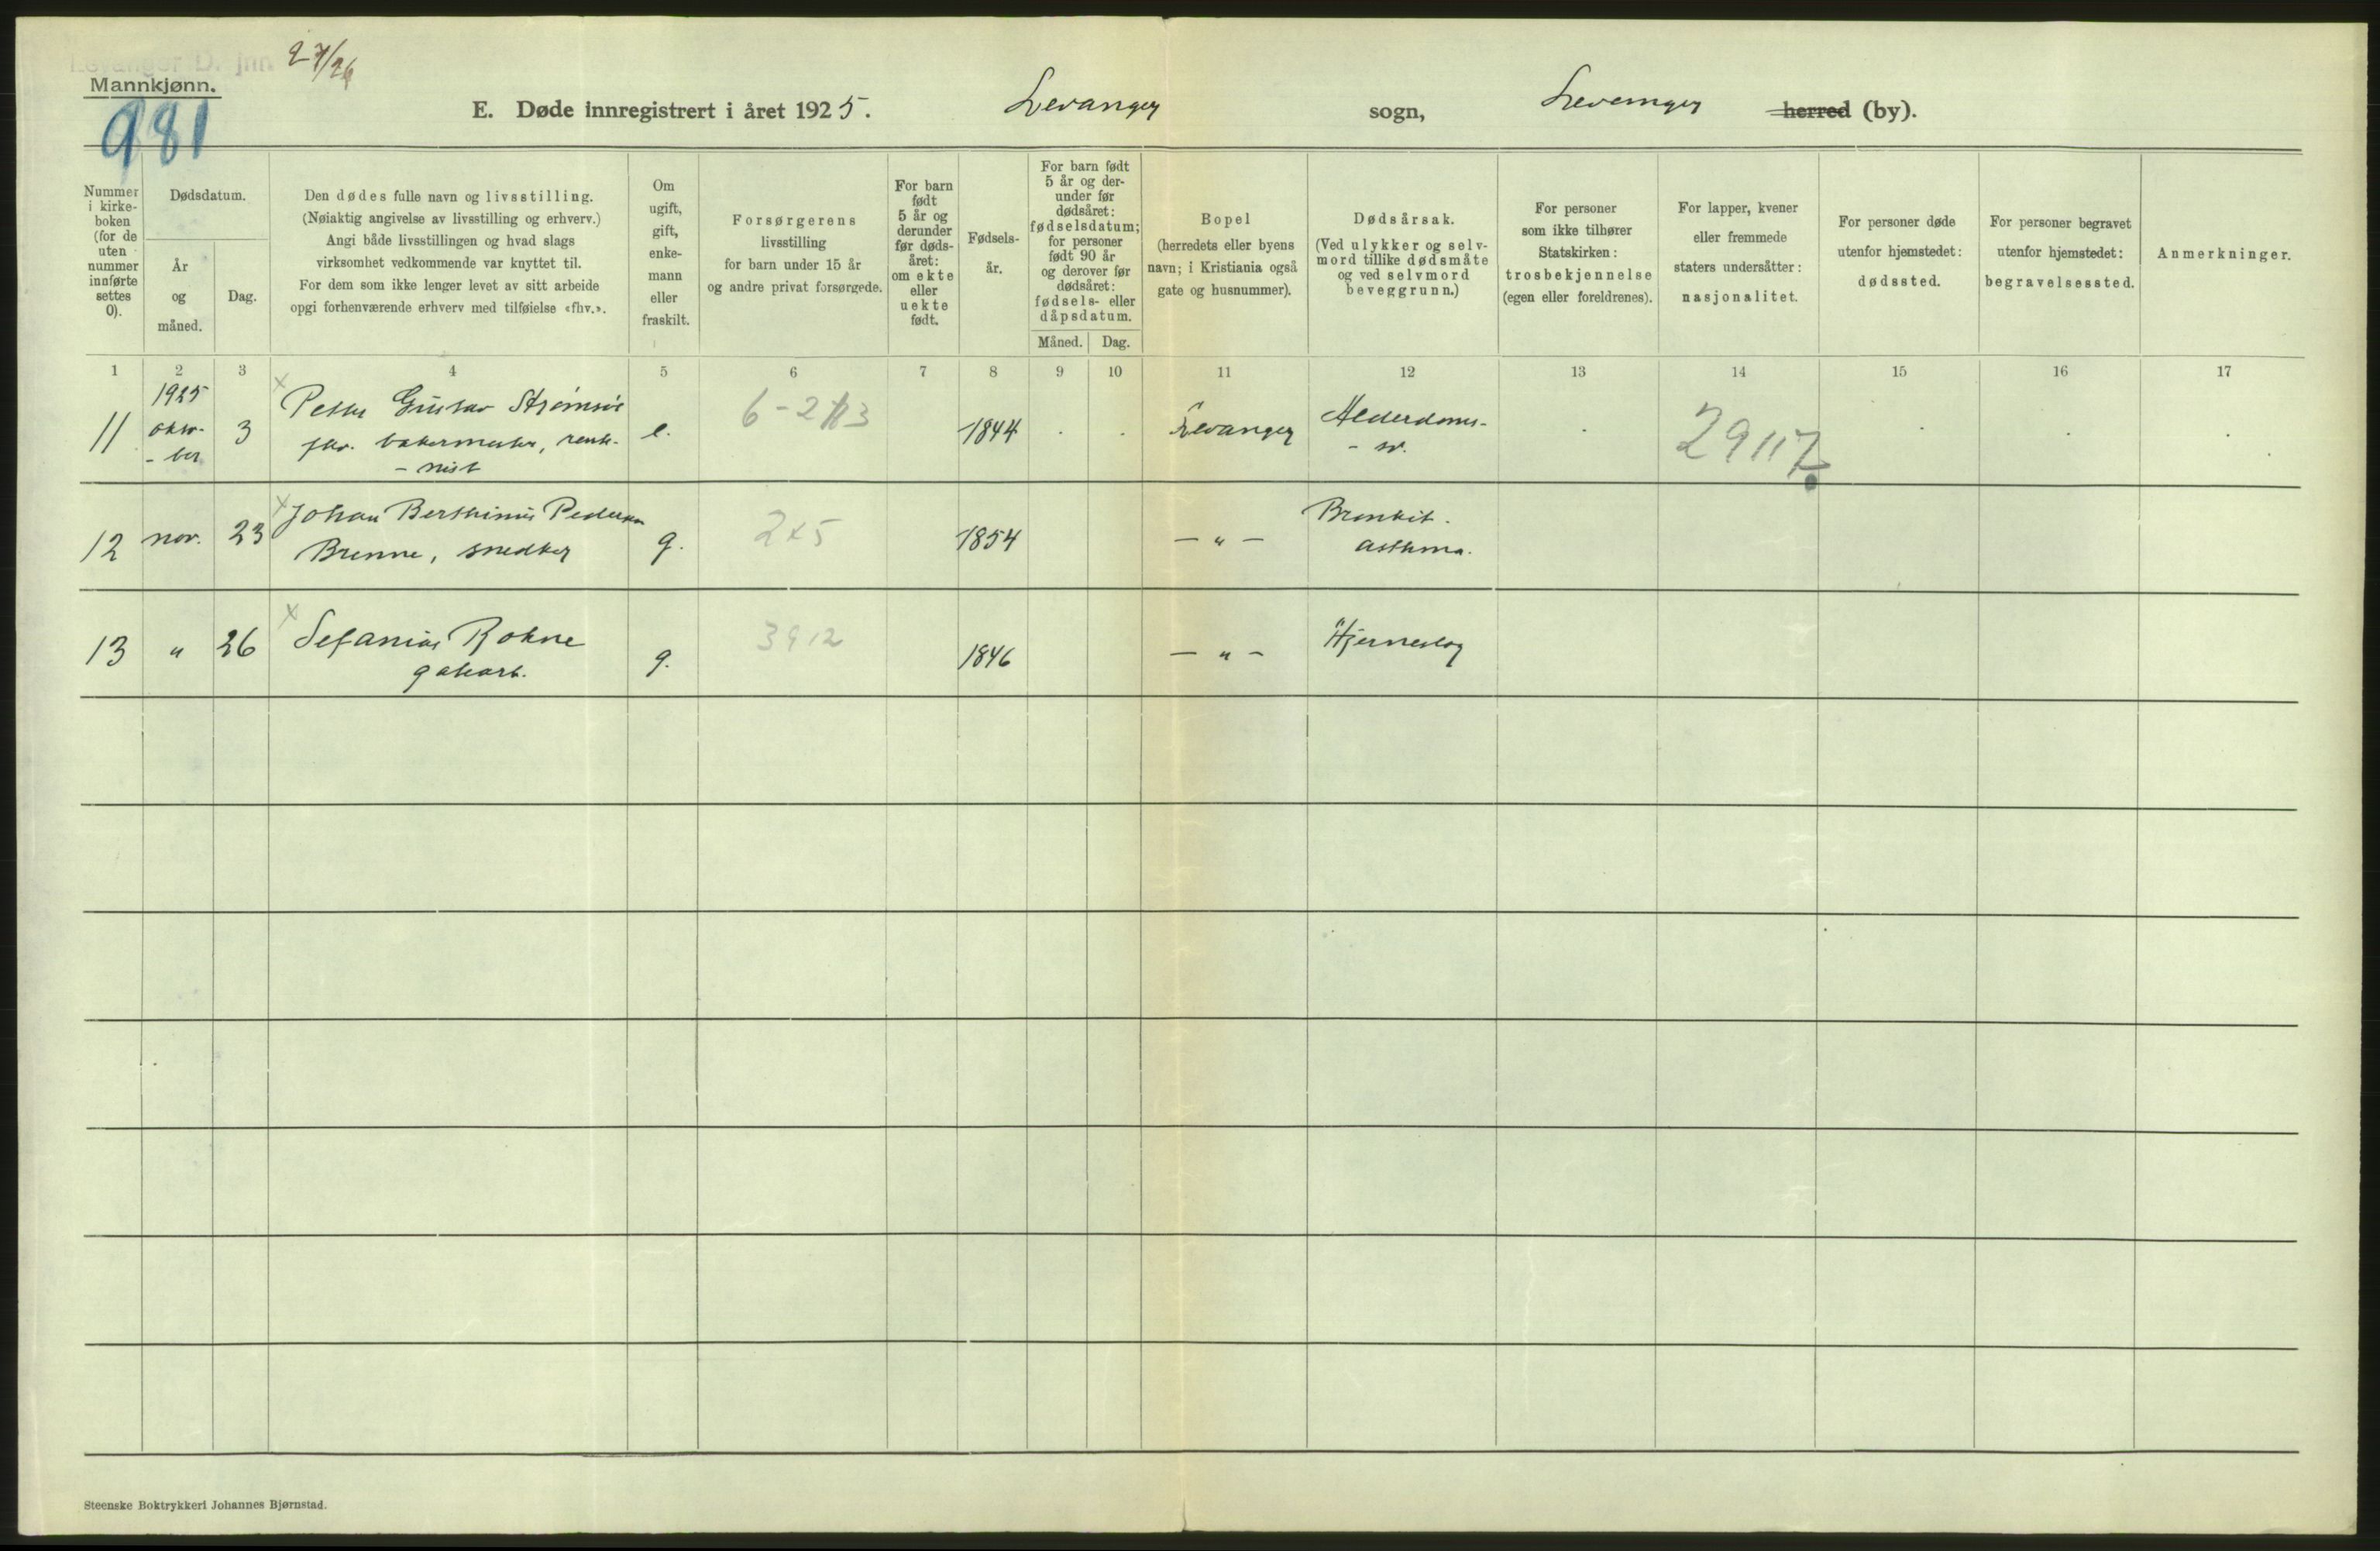 Levanger D. jnr. 27/26
Mannkjønn.
981
E. Døde innregistrert i året 1925. Levanger sogn, Levanger herred (by).
Nummer
i kirke-
boken
(for de
uten
nummer
innførte
settes
0).
Dødsdatum.
År
og
måned.
Dag.
Den dødes fulle navn og livsstilling.
(Nøiaktig angivelse av livsstilling og erhverv.)
Angi både livsstillingen og hvad slags
virksomhet vedkommende var knyttet til.
For dem som ikke lenger levet av sitt arbeide
opgi forhenværende erhverv med tilføielse «fhv.».
Om
ugift,
gift,
enke-
mann
eller
fraskilt.
Forsørgerens
livsstilling
for barn under 15 år
og andre privat forsørgede.
For barn
født
5 år og
derunder
før døds-
året:
om ekte
eller
uekte
født.
Fødsels-
år.
For barn født
5 år og der-
under før
dødsåret:
fødselsdatum;
for personer
født 90 år
og derover før
dødsåret:
fødsels- eller
dåpsdatum.
Måned. Dag.
Bopel
(herredets eller byens
navn; i Kristiania også
gate og husnummer).
Dødsårsak.
(Ved ulykker og selv-
mord tillike dødsmåte
og ved selvmord
beveggrunn.)
For personer
som ikke tilhører
Statskirken:
trosbekjennelse
(egen eller foreldrenes).
For lapper, kvener
eller fremmede
staters undersåtter:
nasjonalitet.
For personer døde
utenfor hjemstedet:
dødssted.
For personer begravet
utenfor hjemstedet:
begravelsessted.
Anmerkninger.
1 2 3 4 5 6 7 8 9 10 11 12 13 14 15 16 17
1925
11 okto-
-ber 3 Petter Gustav Strømsøe
fhv. bakermester, rent-
- nist
e. 6-2 1844 Levanger Alderdoms-
- sv.
29117
12 nov. 23 Johan Berthinus Pedersen
Brenne, snedker g. 2x5 1854 - " - Bronkit.
asthma.
13 " 26 Sefanias Rohne
gatearb. g. 3912 1846 - " - Hjerneslag
Steenske Boktrykkeri Johannes Bjørnstad.